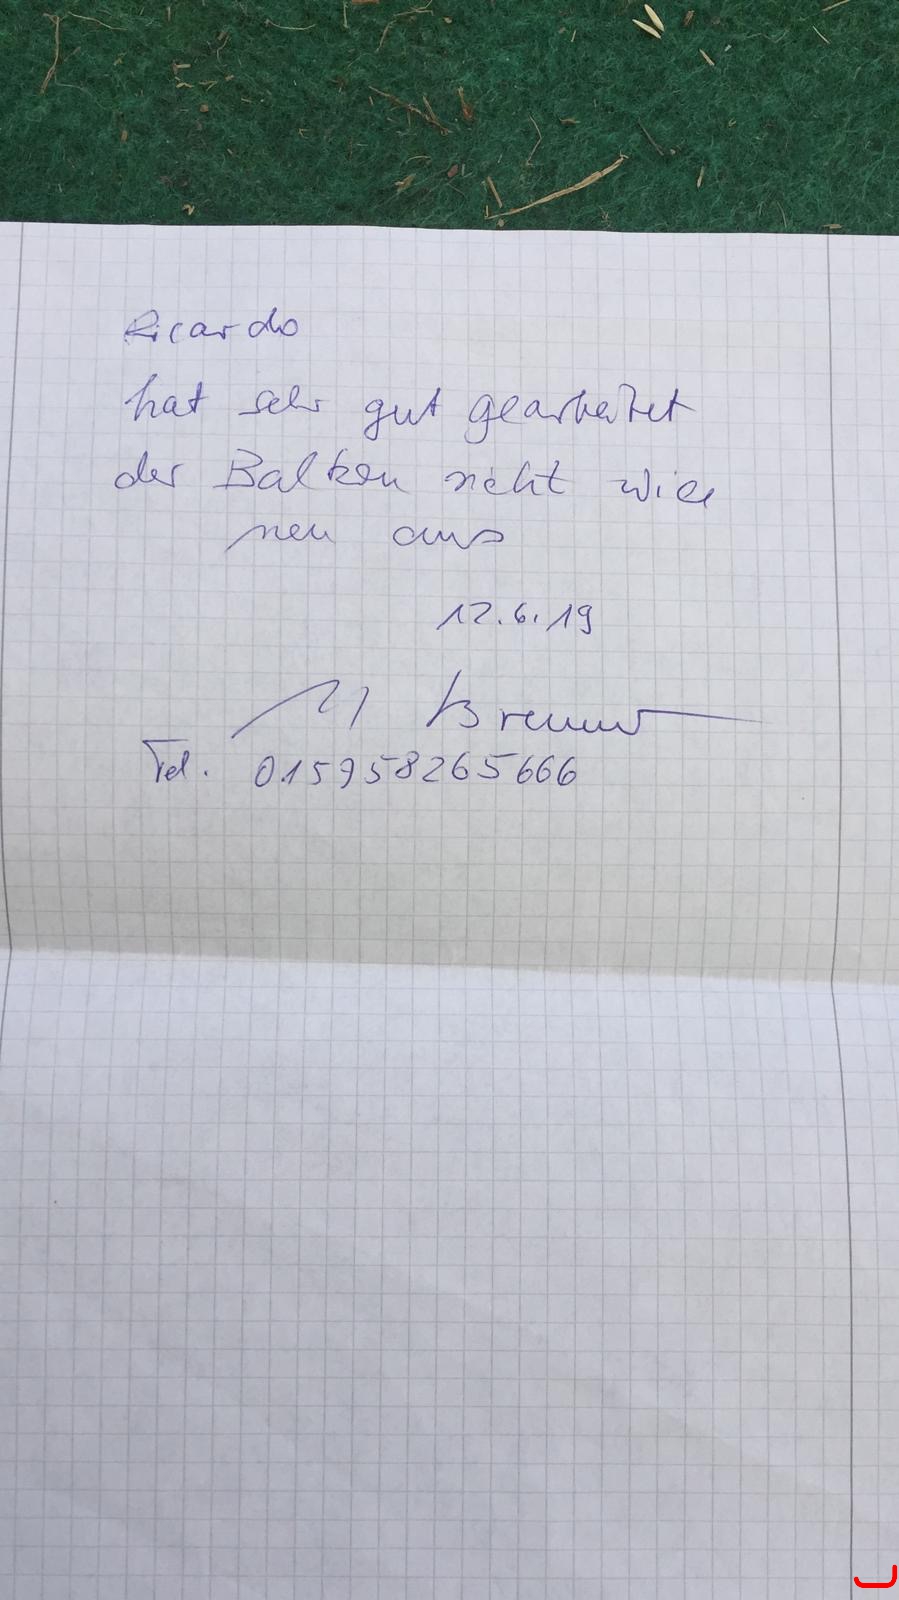 Ricardo
hat sehr gut gearbeitet
der Balkon sieht wie
neu aus
12.6.19
Tel. 015958265666